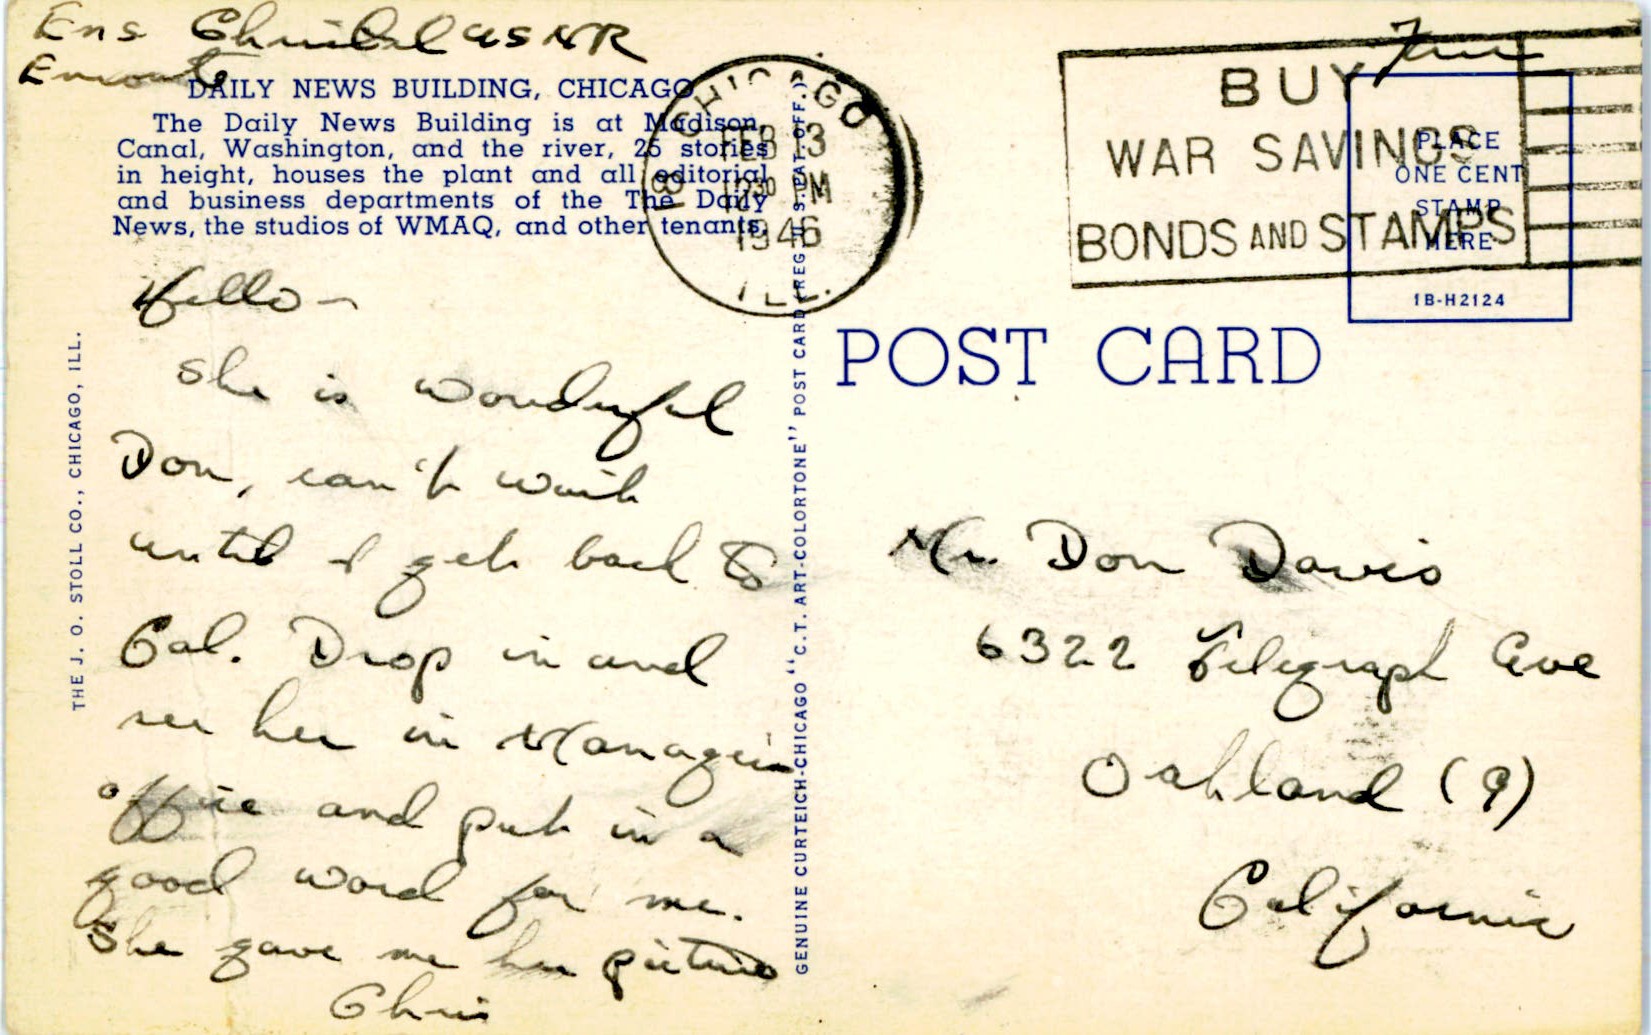 Ens Christel USNR
Enroute
Free
DAILY NEWS BUILDING, CHICAGO
The Daily News Building is at Madison,
Canal, Washington, and the river, 25 stories
in height, houses the plant and all editorial
and business departments of the The Daily
News, the studios of WMAQ, and other tenants.
CHICAGO
FEB 13
12 30 PM
1946
ILL.
BUY
WAR SAVINGS
BONDS AND STAMPS
PLACE
ONE CENT
STAMP
HERE
1B-H2124
POST CARD
Hello –
She is wonderful
Don, can't wait
until I get back to
Cal. Drop in and
see her in Managers
office and put in a
good word for me.
She gave me her picture
Chris
THE J. O. STOLL CO., CHICAGO, ILL.
GENUINE CURTEICH-CHICAGO "C.T. ART-COLORTONE" POST CARD (REG. U.S. PAT. OFF.)
Mr. Don Davis
6322 Telegraph Ave
Oakland (9)
California